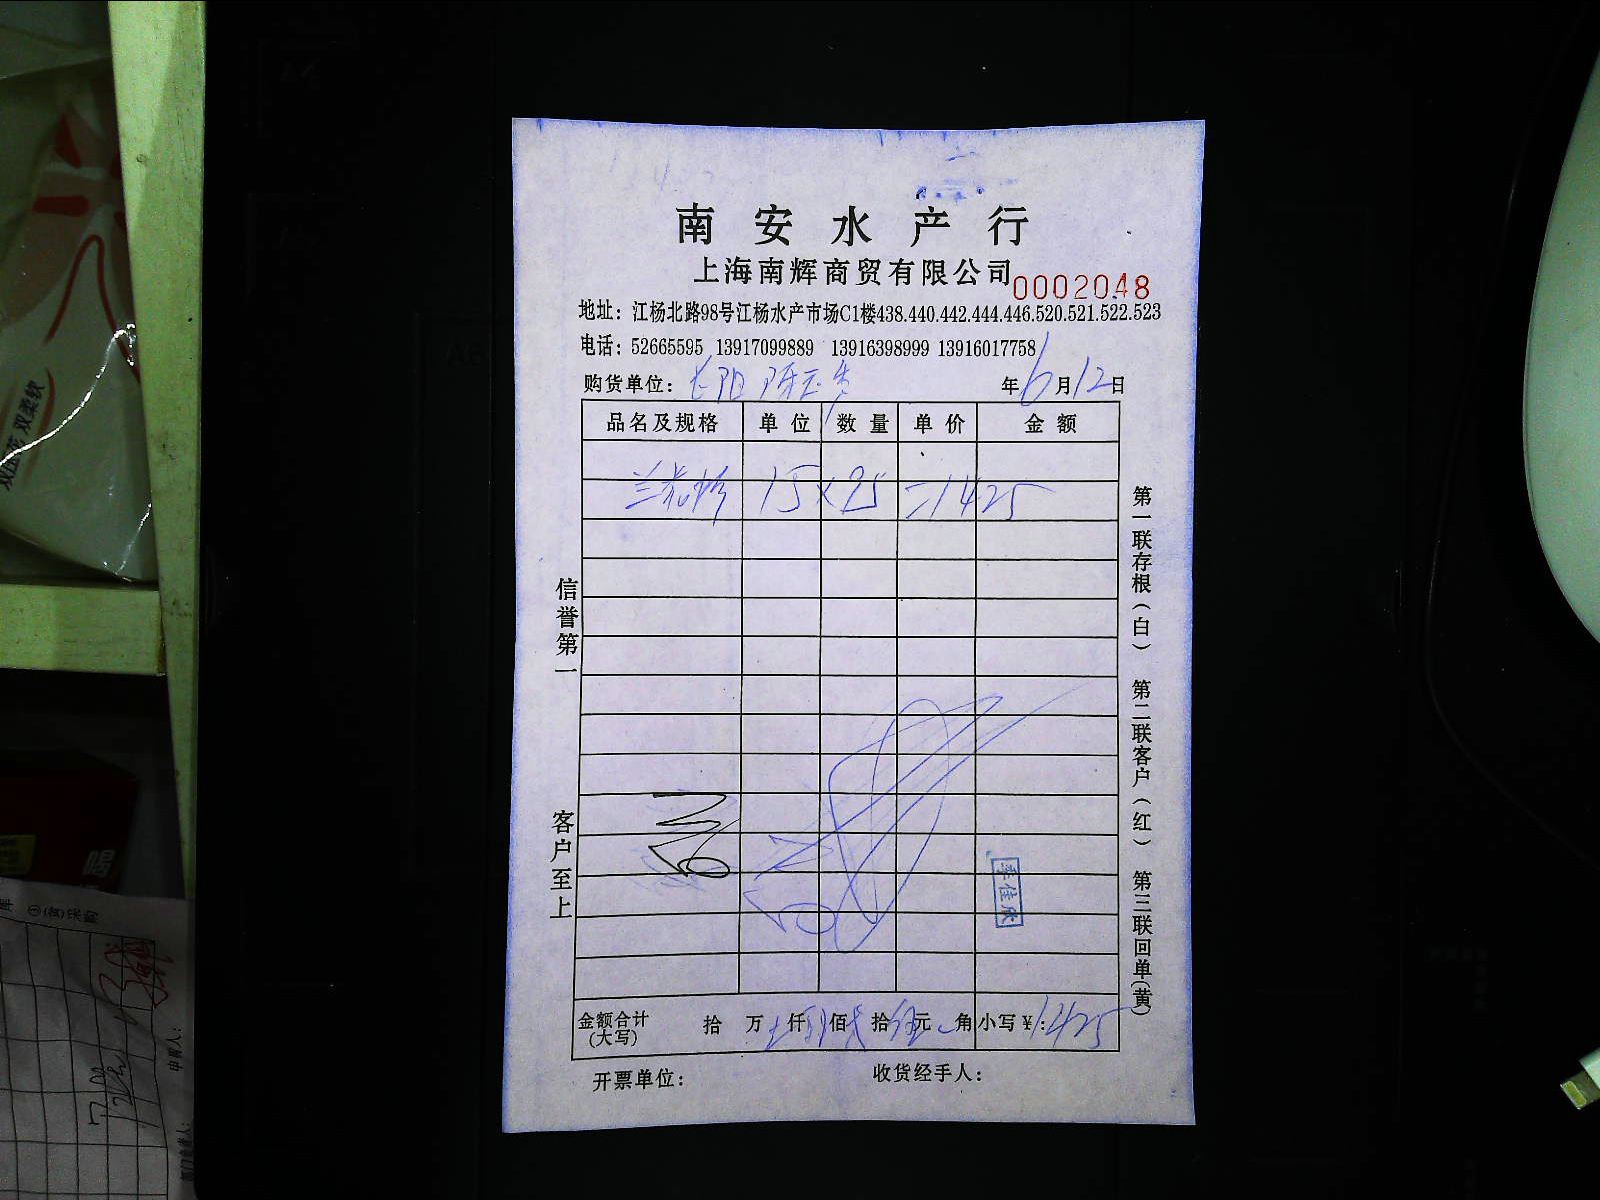 南安水产行
上海南辉商贸有限公司 0002048
地址：江杨北路98号江杨水产市场C1楼438.440.442.444.446.520.521.522.523
电话：52665595 13917099889 13916398999 13916017758
购货单位： 年6月12日
品名及规格 单位 数量 单价 金额
15×95=1425
信誉第一
客户至上
第一联存根（白） 第二联客户（红） 第三联回单（黄）
李佳欣
金额合计(大写) 拾 万 仟 佰 拾 元 角 小写￥：1425
开票单位： 收货经手人：
双柔软
喝